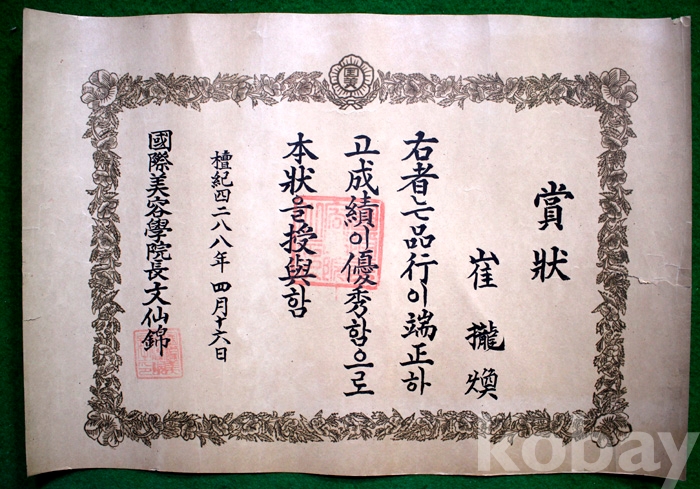 賞狀
崔攏煥
右者는品行이端正하
고成績이優秀함으로
本狀을授與함
檀紀四二八八年 四月十六日
國際美容學院長文仙錦
kobay